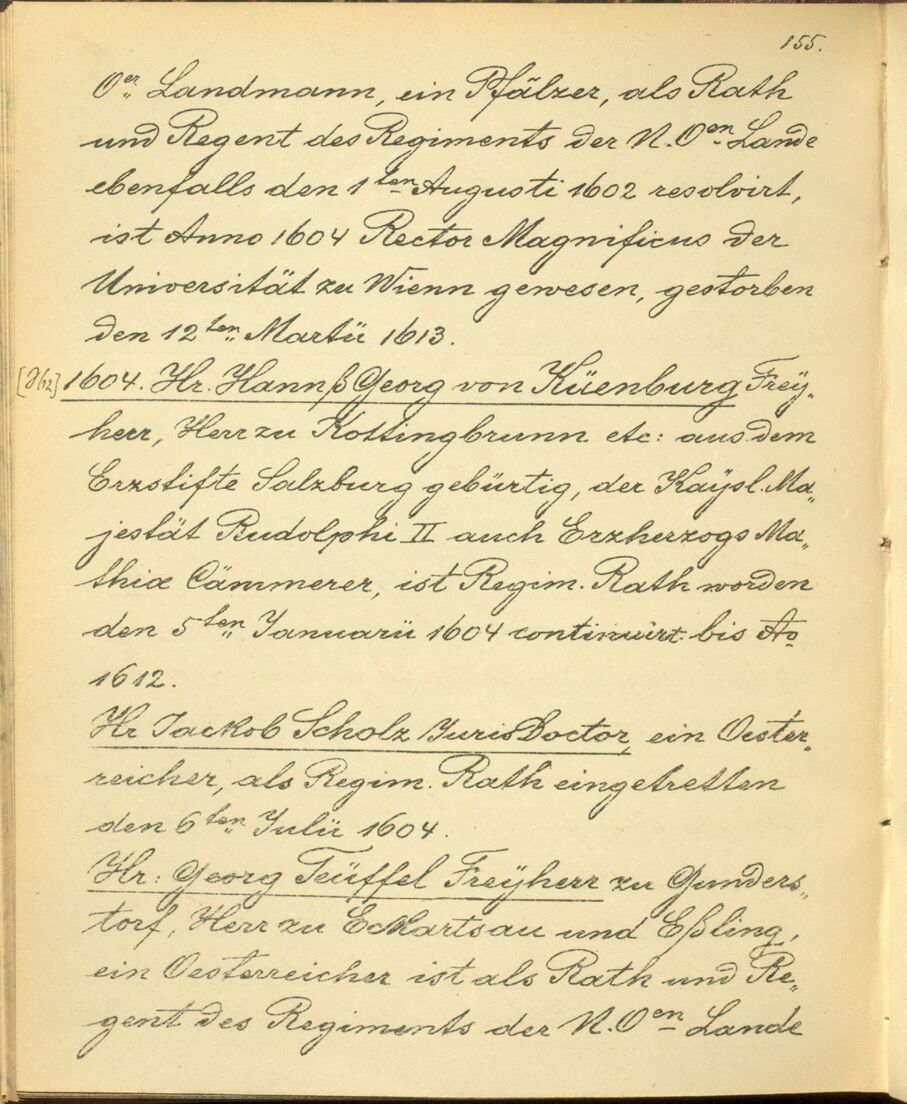 155.
Oer„ Landmann, ein Pfälzer, als Rath
und Regent des Regiments der N. Oen Lande
ebenfalls den 1ten Augusti 1602 resolvirt,
ist Anno 1604 Rector Magnificus der
Universität zu Wienn gewesen, gestorben
den 12ten„ Martii 1613.
1604. Hr. Hannß Georg von Küenburg Frey„
herr, Herr zu Kottingbrunn etc: aus dem
Erzstifte Salzburg gebürtig, der Kaÿsl. Ma„
jestät Rudolphi II auch Erzherzogs Ma„
thiæ Cämmerer, ist Regim. Rath worden
den 5ten„ Januarii 1604 continuirt bis Ao
1612.
Hr Jackob Scholz Juris Doctor, ein Oester„
reicher, als Regim. Rath eingetretten
den 6ten„ Julii 1604.
Hr: Georg Teüffel Freÿherr zu Gunders„
torf, Herr zu Eckhartsau und Eßling,
ein Oesterreicher ist als Rath und Re„
gent des Regiments der N. Oen Lande